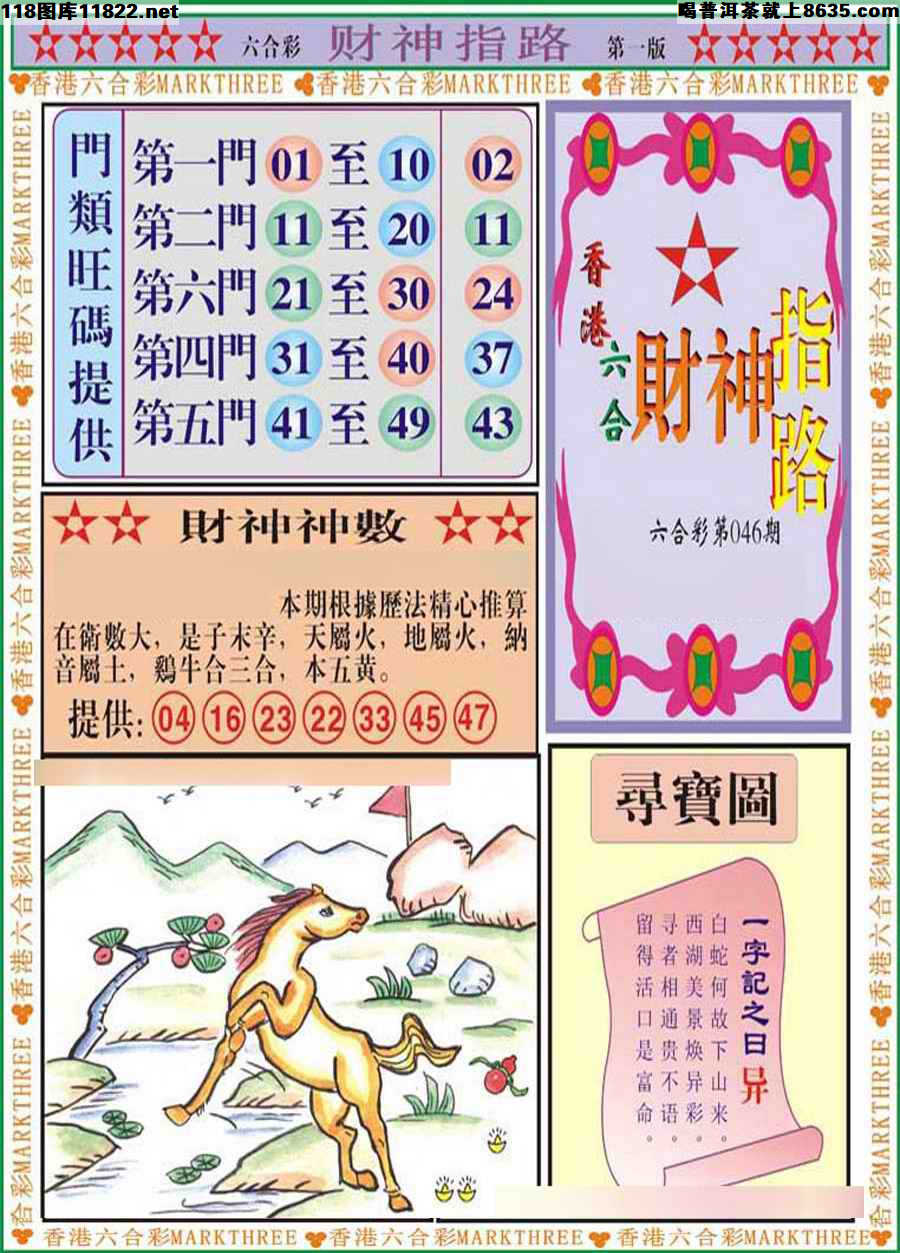 118图库11822.net
喝普洱茶就上8635.com
六合彩 财神指路 第一版
香港六合彩MARKTHREE 香港六合彩MARKTHREE 香港六合彩MARKTHREE
門類旺碼提供
第一門 01 至 10 02
第二門 11 至 20 11
第六門 21 至 30 24
第四門 31 至 40 37
第五門 41 至 49 43
香港六合
財神指路
六合彩第046期
財神神數
本期根據歷法精心推算
在衛數大，是子末辛，天屬火，地屬火，納
音屬土，鷄牛合三合，本五黄。
提供: 04 16 23 22 33 45 47
尋寶圖
一字記之日异
白蛇何故下山来。
西湖美景焕异彩。
寻者相通贵不语。
留得活口是富命。
香港六合彩MARKTHREE 香港六合彩MARKTHREE 香港六合彩MARKTHREE 合彩MARKTHREE
香港六合彩MARKTHREE 香港六合彩MARKTHREE 香港六合彩MARKTHREE 合彩MARKTHREE
香港六合彩MARKTHREE 香港六合彩MARKTHREE 香港六合彩MARKTHREE